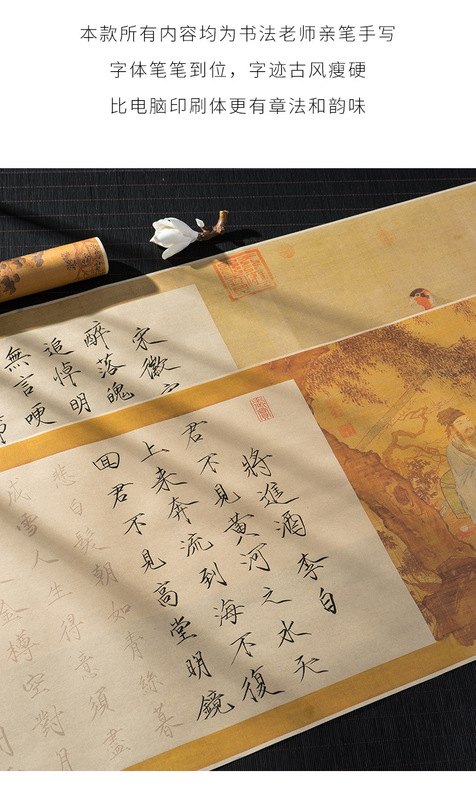 本款所有内容均为书法老师亲笔手写
字体笔笔到位，字迹古风瘦硬
比电脑印刷体更有章法和韵味
宋徽
醉落魄
追悼明
無言哽
將進酒 李白
君不見黄河之水天
上来奔流到海不復
回君不見高堂明鏡
悲白髮朝如青絲暮
成雪人生得意須盡
金樽空對月